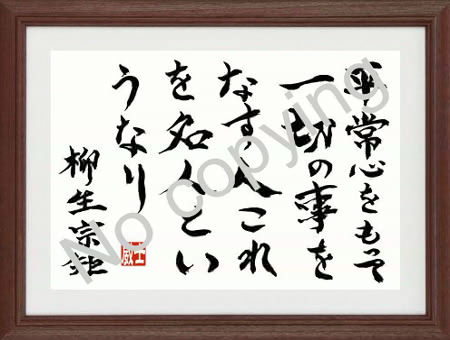 平常心をもって
一切の事を
なす人これ
を名人とい
うなり
柳生宗矩
No copying